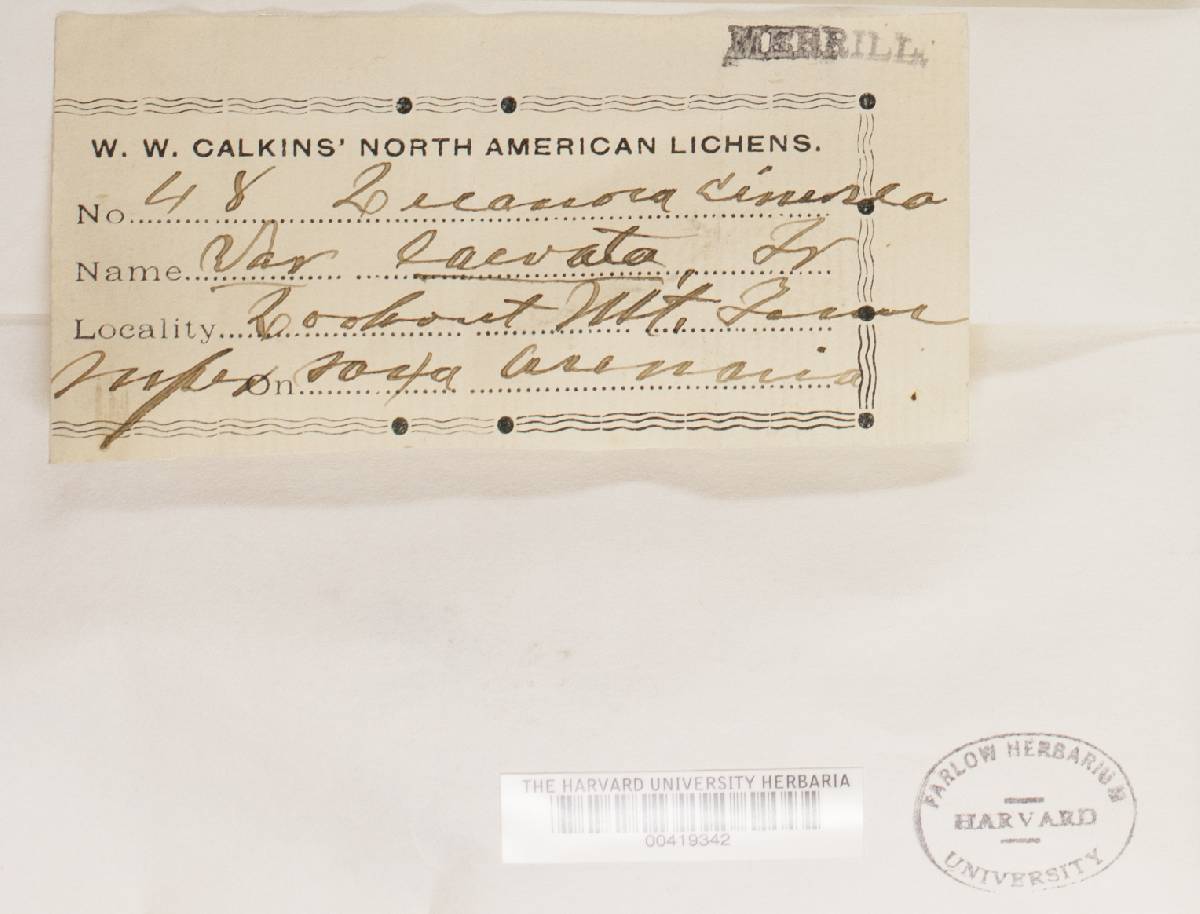 MERRILL
W. W. CALKINS' NORTH AMERICAN LICHENS.
No. 48 Lecanora cinerea
Name Var laevata, Fr
Locality Lookout Mt. Tenn
super On saxa arenaria
THE HARVARD UNIVERSITY HERBARIA
00419342
FARLOW HERBARIUM
HARVARD
UNIVERSITY